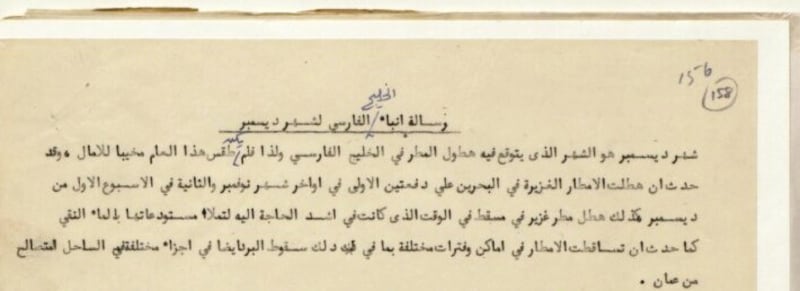 156
158
الخليج
رسالة انباء الفارسي لشهر ديسمبر
شهر ديسمبر هو الشهر الذى يتوقع فيه هطول المطر في الخليج الفارسي ولذا فلم يكن طقس هذا العام مخيبا للامال ، وقد
حدث ان هطلت الامطار الغزيرة في البحرين علي دفعتين الاولى في اواخر شهر نوفمبر والثانية في الاسبوع الاول من
ديسمبر كذلك هطل مطر غزير في مسقط في الوقت الذى كانت في اشد الحاجة اليه لتملاء مستودعاتها بالماء النقي
كما حدث ان تساقطت الامطار في اماكن وفترات مختلفة بما في ذلك سقوط البرد ايضا في اجزاء مختلفة في الساحل المتصالح
من عمان .